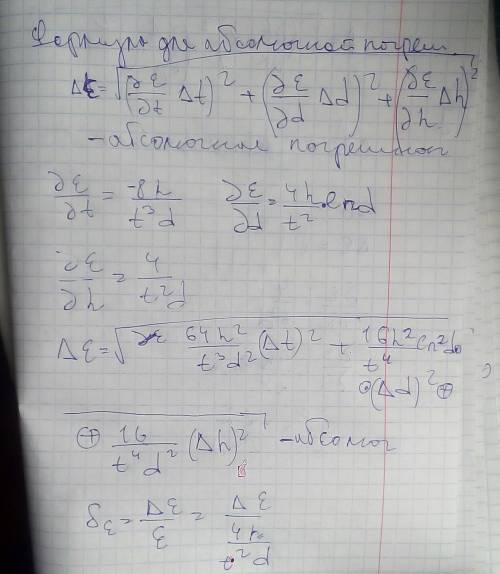 Формулы для абсолютной погреш.
Δε = √((∂ε/∂t Δt)² + (∂ε/∂d Δd)² + (∂ε/∂h Δh)²
– абсолютная погрешност
∂ε/∂t = -8h/t³d   ∂ε/∂d = 4h/t² · lnd
∂ε/∂h = 4/t²d
Δε = √(64h²/t³d² (Δt)² + 16h²ln²d/t⁴ ·
·(Δd)² ⊕
⊕ 16/t⁴d² (Δh)² – абсолют
δε = Δε/ε = Δε/(4h/t²d)